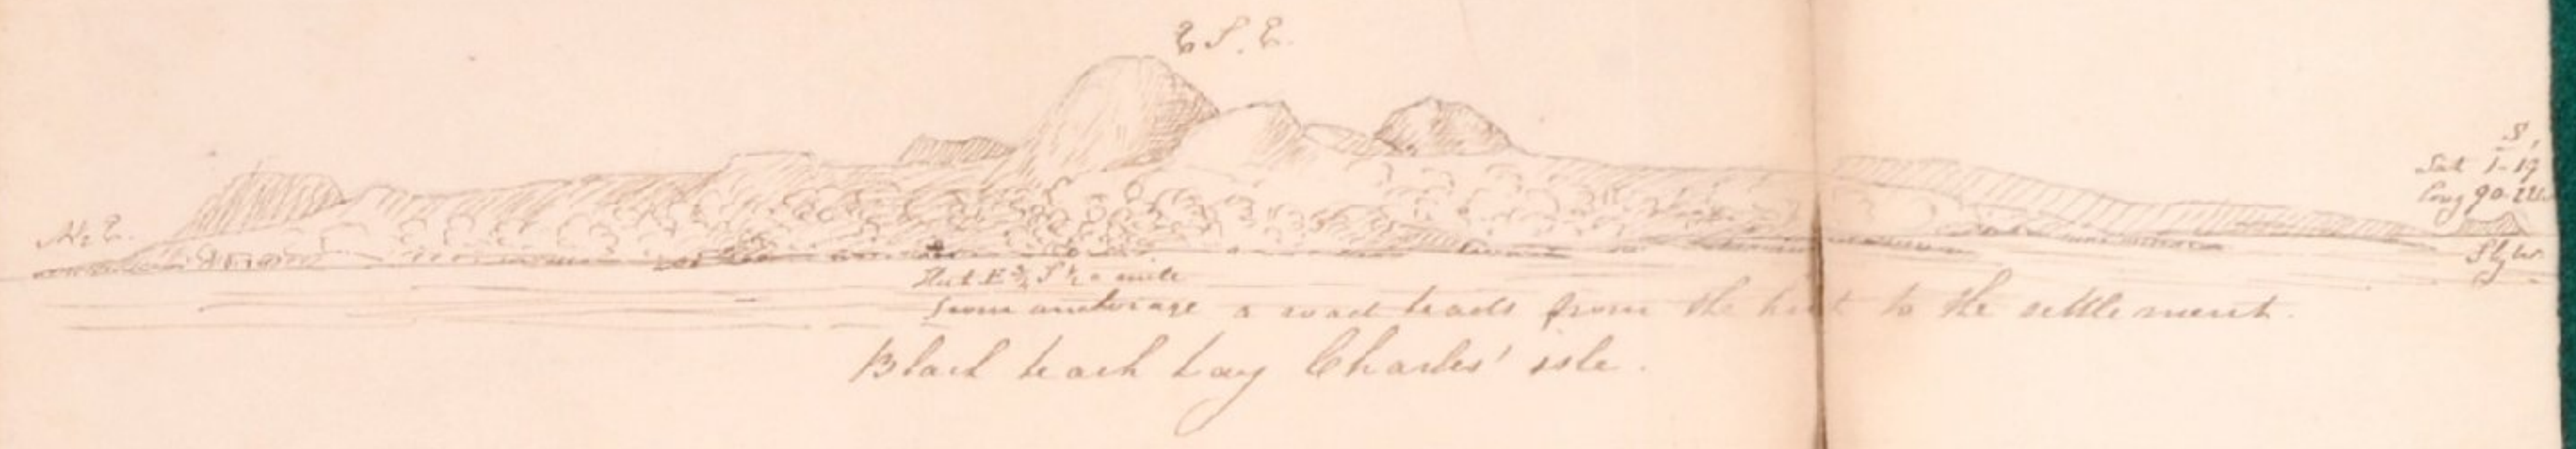 E S. E.
S,
Lat 1-19
Long 90-
N. E.
S by W.
Hut E ¾ S ½ a mile
from anchorage a road leads from the hut to the settlement.
Black beach bay Charles' isle.